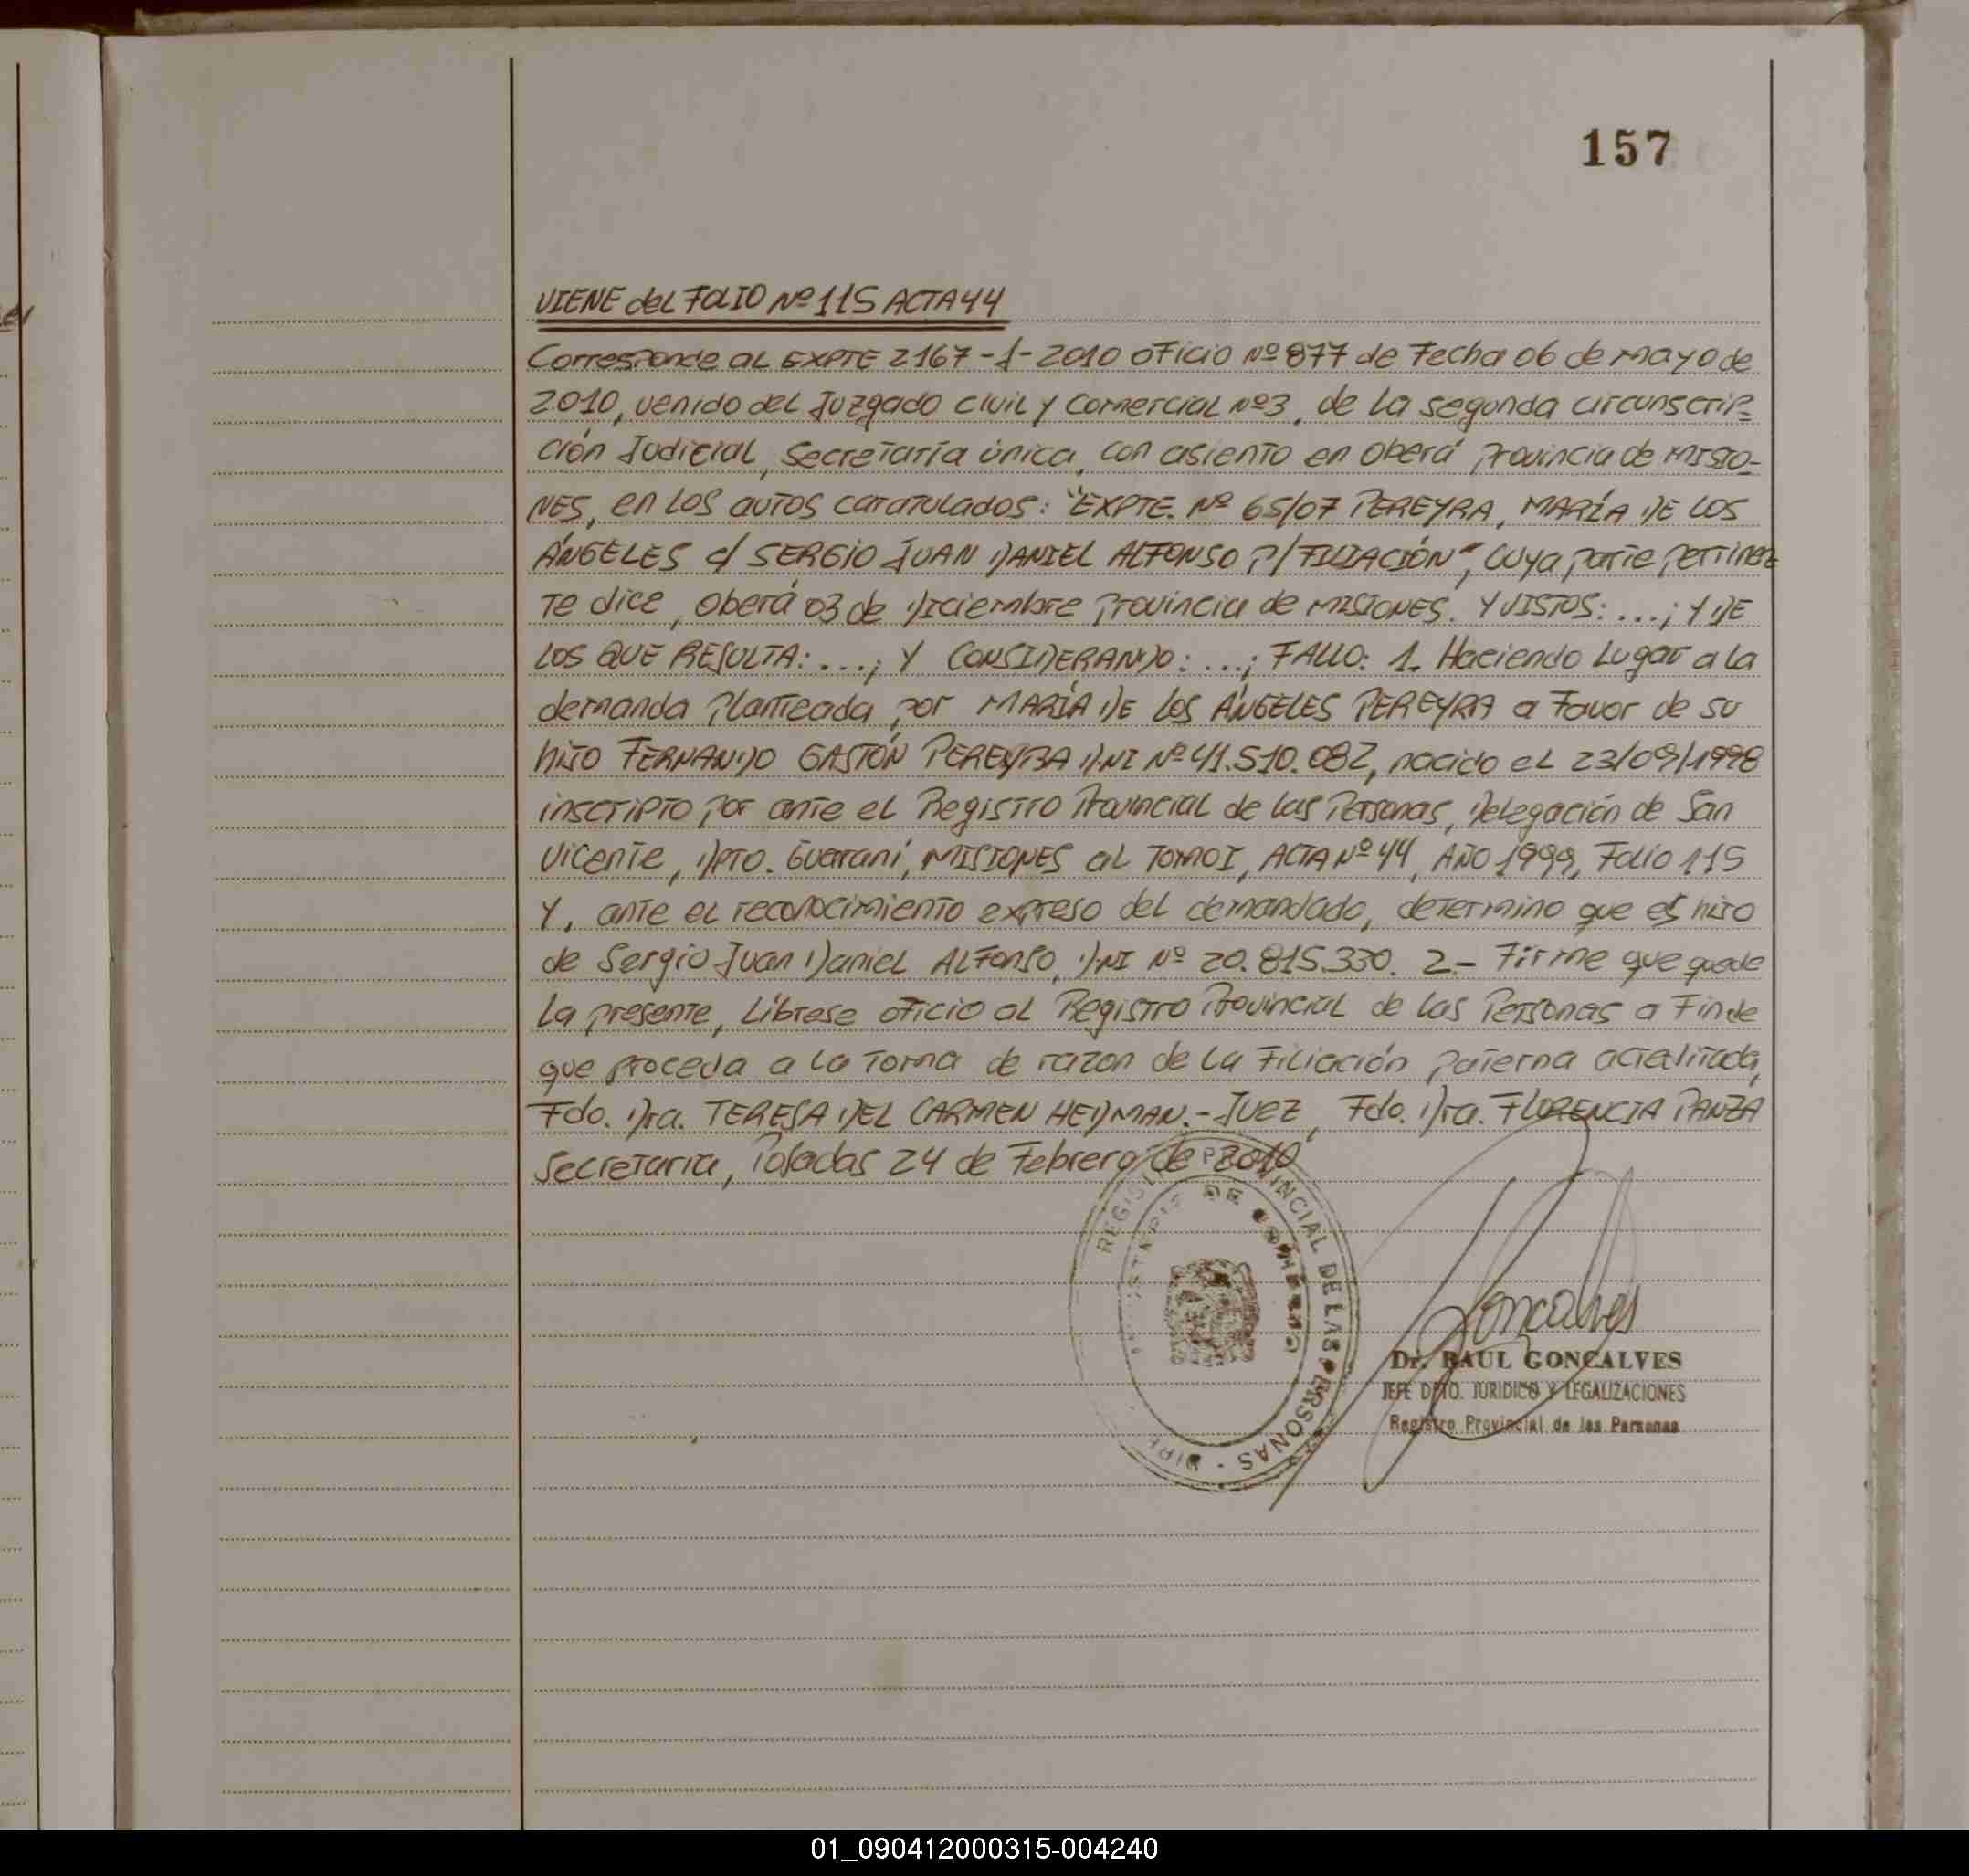 157
VIENE del FOLIO Nº 115 ACTA 44
Corresponde al EXPTE 2167-1-2010 oficio Nº 877 de Fecha 06 de mayo de
2010, venido del Juzgado civil y Comercial Nº3, de la segunda circunscrip-
ción Judicial, Secretaría única, con asiento en Oberá provincia de MISIO-
NES, en los autos caratulados: "EXPTE. Nº 65/07 PEREYRA, MARÍA DE LOS
ÁNGELES c/ SERGIO JUAN DANIEL ALFONSO P/ FILIACIÓN", cuya parte pertinen
te dice, Oberá 03 de Diciembre provincia de MISIONES. Y VISTOS: ...; Y DE
LOS QUE RESULTA: ...; Y CONSIDERANDO: ...; FALLO: 1. Haciendo Lugar a la
demanda planteada por MARÍA DE LOS ÁNGELES PEREYRA a Favor de su
hijo FERNANDO GASTÓN PEREYRA DNI Nº 41.510.082, nacido el 23/09/1998
inscripto por ante el Registro Provincial de las Personas, Delegación de San
Vicente, DPTO. Guaraní, MISIONES al TOMO I, ACTA Nº 44, AÑO 1999, Folio 115
Y, ante el reconocimiento expreso del demandado, determino que es hijo
de Sergio Juan Daniel ALFONSO, DNI Nº 20.815.330. 2.- Firme que quede
la presente, Líbrese oficio al Registro Provincial de las Personas a Fin de
que proceda a la Toma de razon de la Filiación paterna acreditada,
Fdo. Dra. TERESA DEL CARMEN HEDMAN.- JUEZ, Fdo. Dra. FLORENCIA PANZA
Secretaria, Posadas 24 de Febrero de 2010
REGIS PROVINCIAL DE LAS PERSONAS
DE GOBIERNO
Goncalves
Dr. RAUL GONCALVES
JEFE DPTO. JURIDICO Y LEGALIZACIONES
Registro Provincial de las Personas
01_090412000315-004240